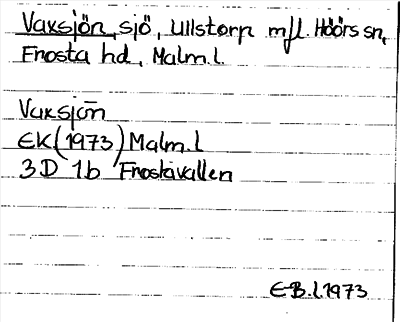 Vaxsjön, sjö, Ullstorp m fl. Höörs sn,
Frosta hd, Malm. l.
Vaxsjön
EK (1973) Malm. l
3D 1b Frostavallen
E-B. l. 1973